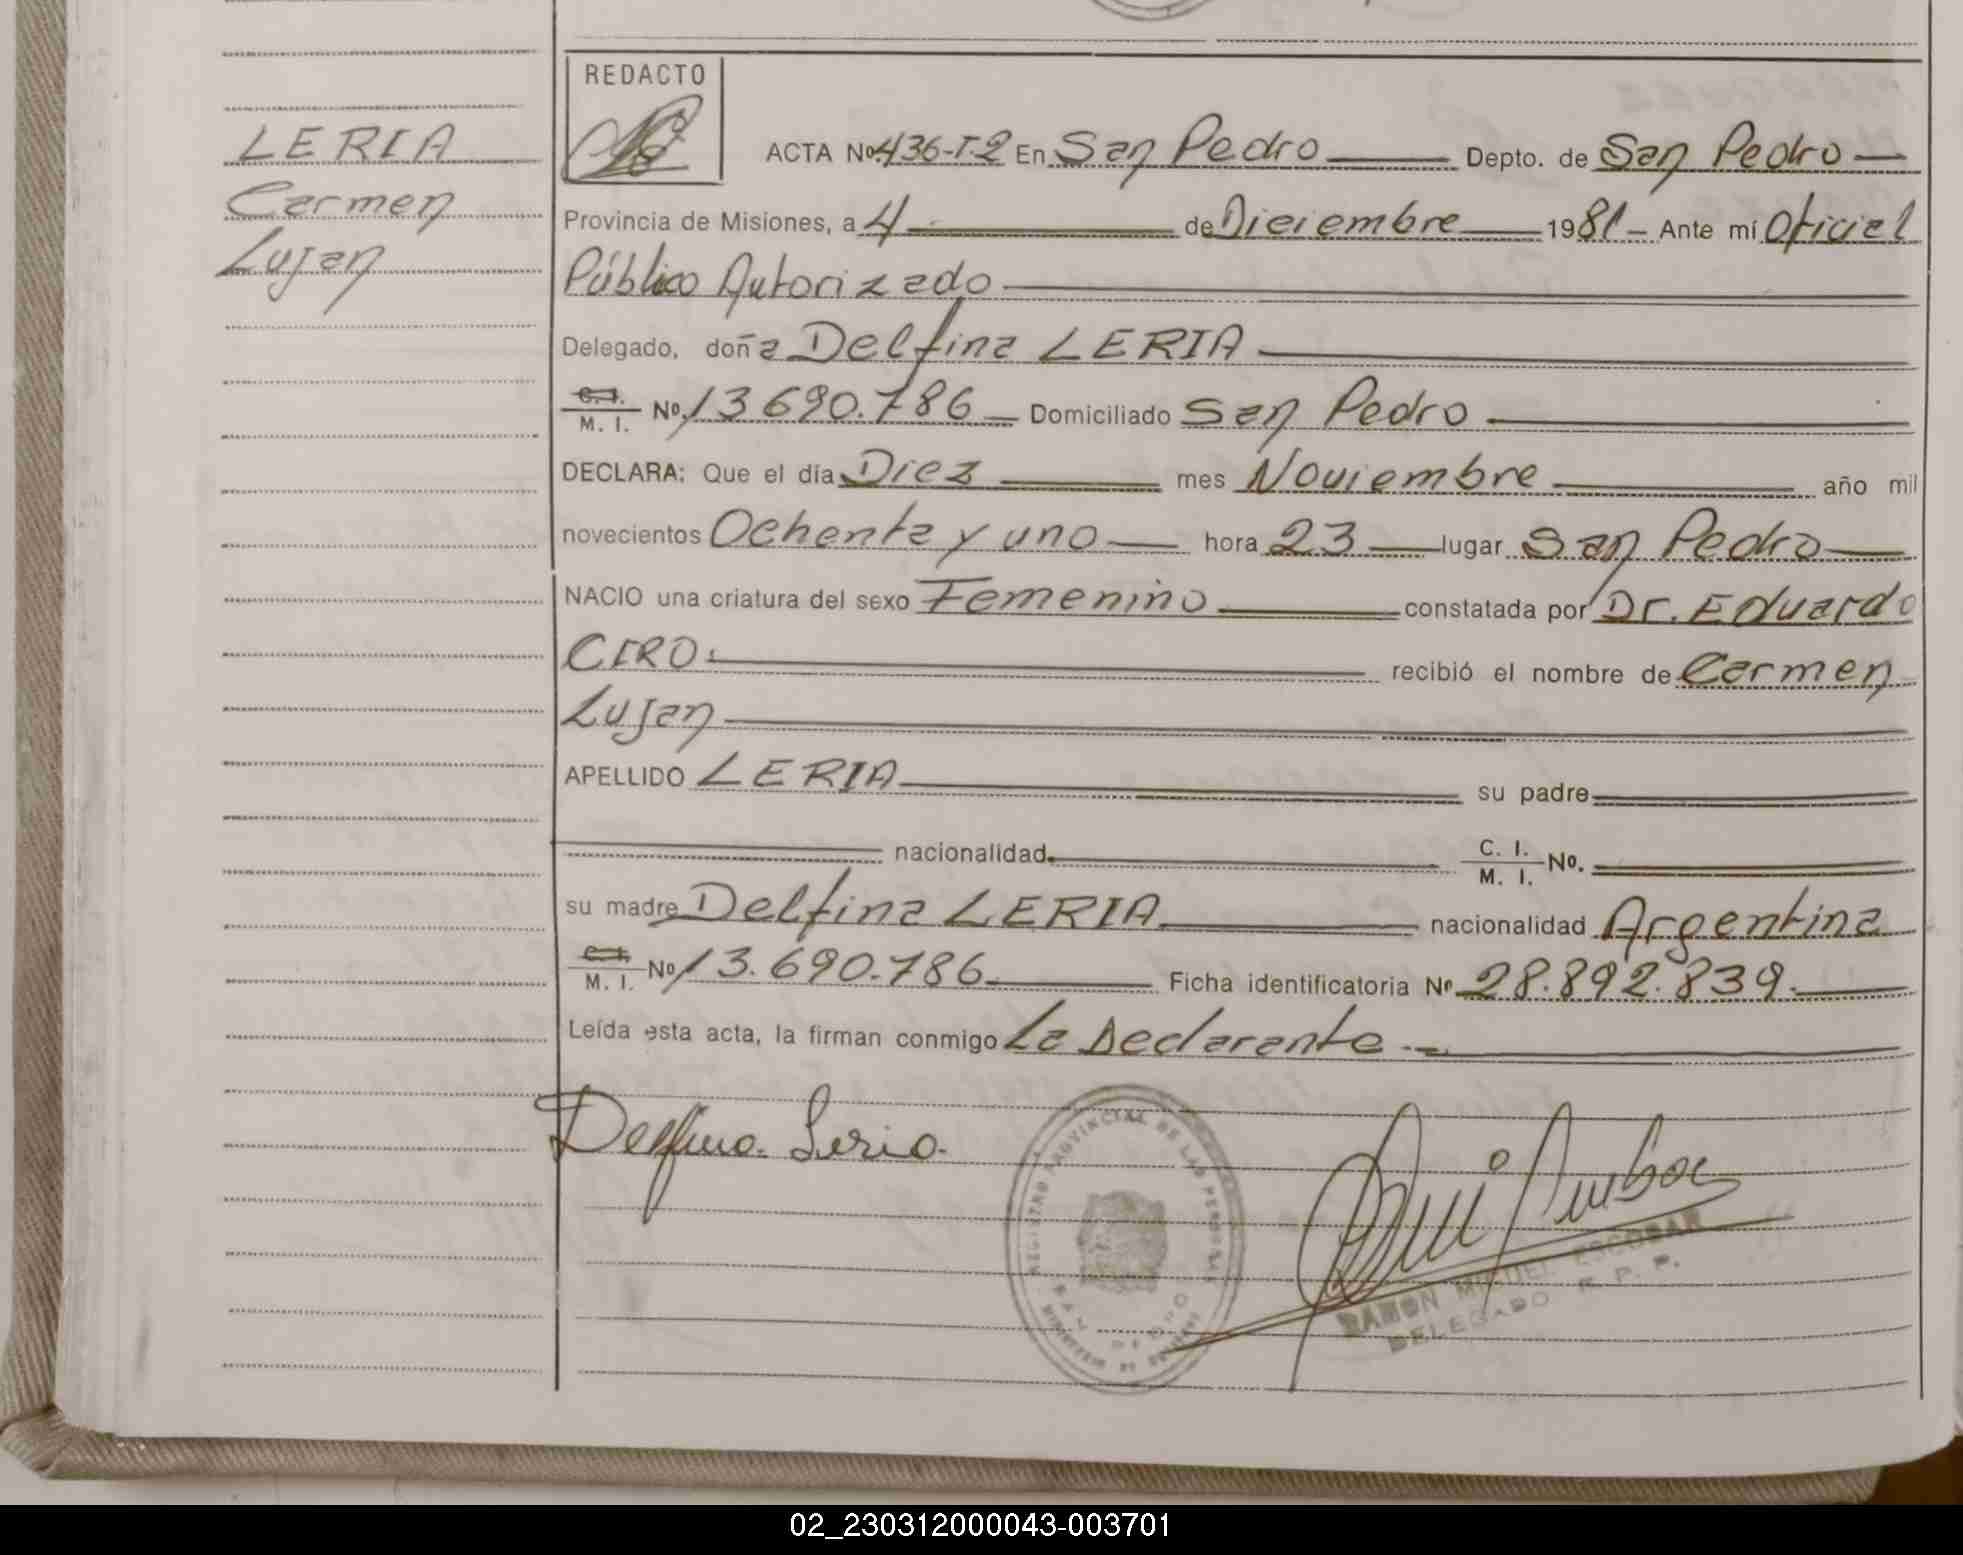 REDACTO
LERIA
Carmen
Lujan
ACTA Nº 436-T.2 En San Pedro Depto. de San Pedro
Provincia de Misiones, a 4 de Diciembre 1981 Ante mí Oficial
Público Autorizado
Delegado, doña Delfina LERIA
C. I. / M. I. Nº 13690.786 Domiciliado San Pedro
DECLARA: Que el día Diez mes Noviembre año mil
novecientos Ochenta y uno hora 23 lugar San Pedro
NACIO una criatura del sexo Femenino constatada por Dr. Eduardo
CIRO. recibió el nombre de Carmen
Lujan
APELLIDO LERIA su padre
nacionalidad C. I. / M. I. Nº.
su madre Delfina LERIA nacionalidad Argentina
C. I. / M. I. Nº 13.690.786. Ficha identificatoria Nº 28.892.839.
Leída esta acta, la firman conmigo La Declarante.
Delfina Leria.
REGISTRO PROVINCIAL DE LAS PERSONAS
SAN PEDRO
RAMON MIGUEL ESCOBAR
DELEGADO R. P. P.
02_230312000043-003701